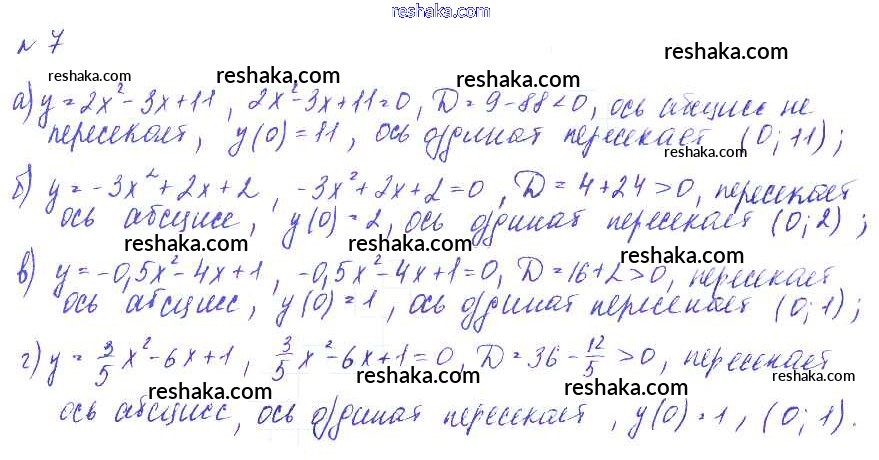 reshaka.com
№ 7
reshaka.com
reshaka.com reshaka.com reshaka.com
а) y = 2x² - 3x + 11, 2x² - 3x + 11 = 0, D = 9 - 88 < 0, ось абсцисс не
пересекает, y(0) = 11, ось ординат пересекает (0; 11);
reshaka.com
б) y = -3x² + 2x + 2, -3x² + 2x + 2 = 0, D = 4 + 24 > 0, пересекает
ось абсцисс, y(0) = 2, ось ординат пересекает (0; 2);
reshaka.com reshaka.com reshaka.com
в) y = -0,5x² - 4x + 1, -0,5x² - 4x + 1 = 0, D = 16 + 2 > 0, пересекает
ось абсцисс, y(0) = 1, ось ординат пересекает (0; 1);
г) y = 3/5 x² - 6x + 1, 3/5 x² - 6x + 1 = 0, D = 36 - 12/5 > 0, пересекает
reshaka.com reshaka.com reshaka.com reshaka.com
ось абсцисс, ось ординат пересекает, y(0) = 1, (0; 1).